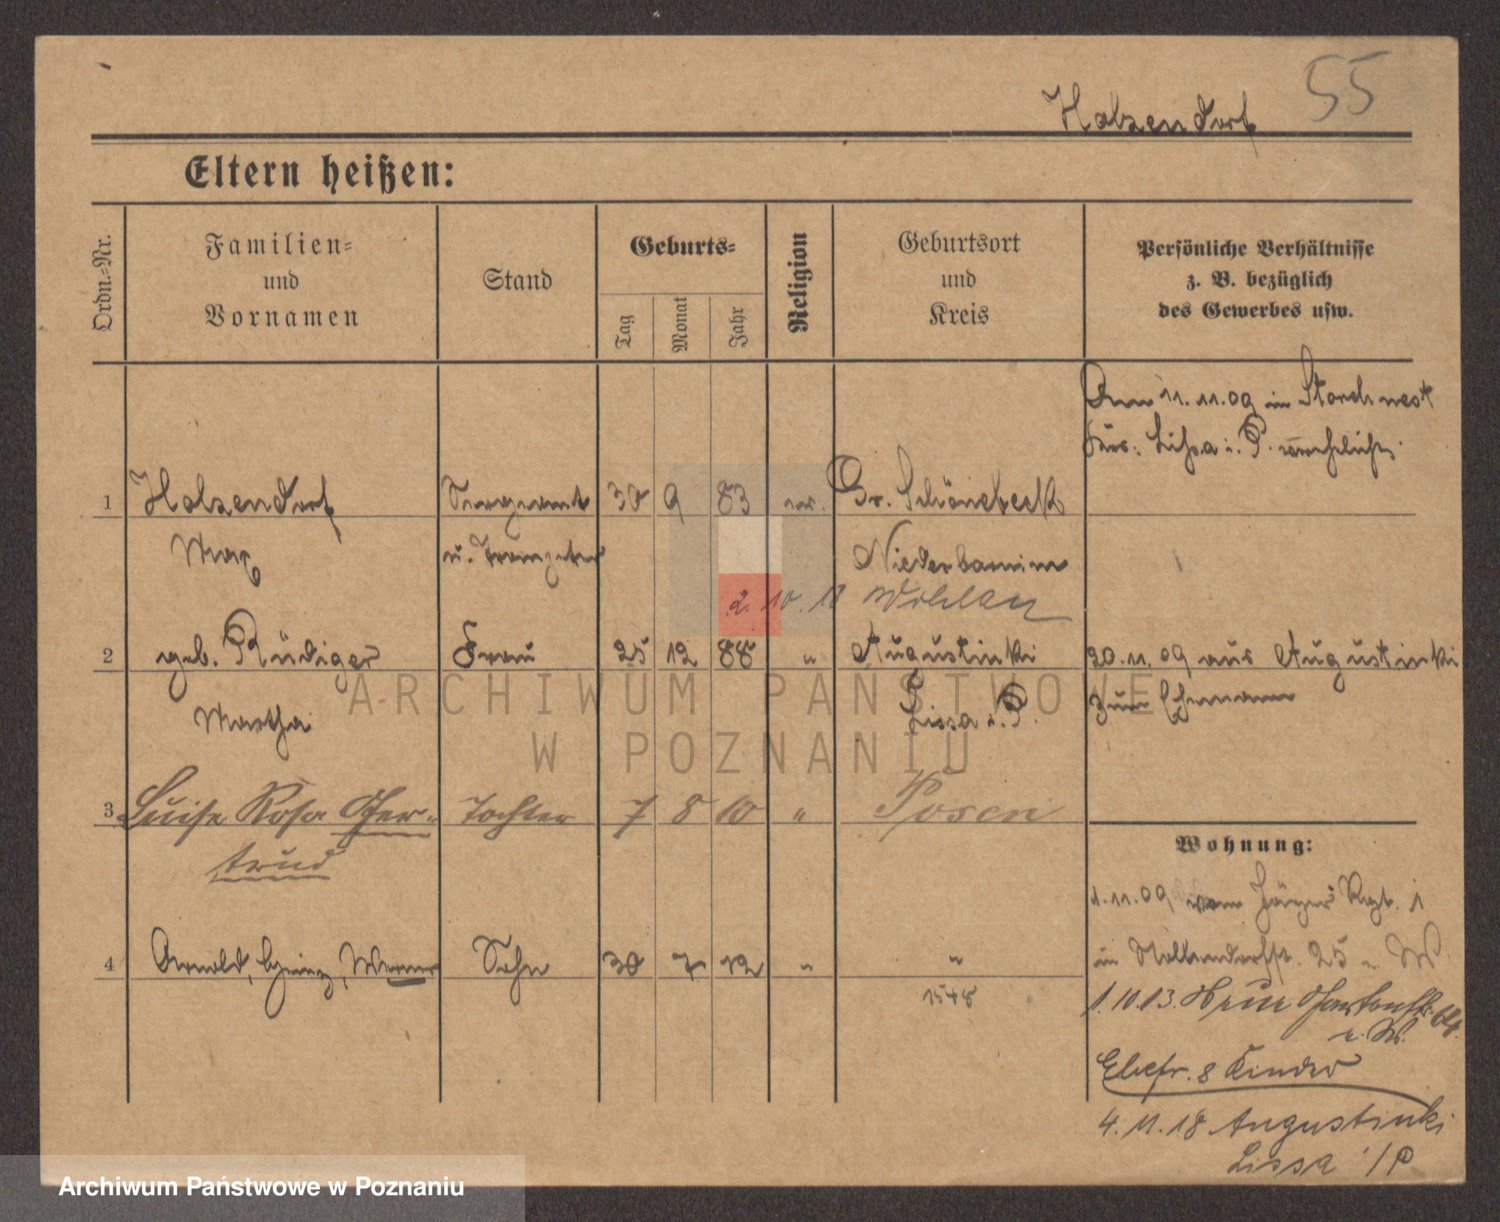 55
Holzendorf
Eltern heißen:
Ordn.-Nr.
Familien-
und
Vornamen
Stand
Geburts-
Tag
Monat
Jahr
Religion
Geburtsort
und
Kreis
Persönliche Verhältnisse
z. B. bezüglich
des Gewerbes usw.
Am 11.11.09 in Storchnest
Krs. Lissa i. P. verehelicht.
1 Holzendorf Sergeant 30 9 83 ev. Gr. Schönebeck
Max u. Trompeter Niederbarnim
2.10.18 Wohlau
2 geb. Rüdiger Frau 25 12 88 " Augustinki 20.11.09 aus Augustinki
Martha Lissa i. P. zum Ehemann
3 Luise Rosa Ger- Tochter 7 8 10 " Posen
trud
Wohnung:
1.11.09 vom Jäger Rgt. 1
4 Arnold, Heinz, Werner Sohn 30 7 12 " "
in Nollendorfstr. 25 W
1548
1.10.13. Neue Gartenstr. 64.
Ehefr. & Kinder
4.11.18 Augustinki
Lissa i/P
ARCHIWUM PAŃSTWOWE
W POZNANIU
Archiwum Państwowe w Poznaniu